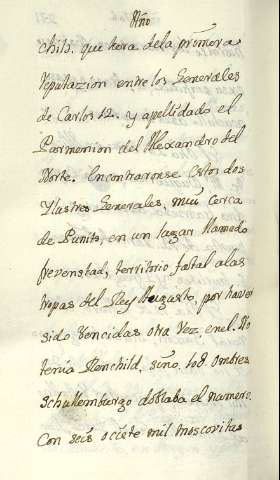 Año
child. que hera dela primera
reputazion entre los Generales
de Carlos 12. y apellidado el
Parmenion del Alexandro del
Norte. Encontraronse estos dos
Ylustres Generales, mui cerca
de Punits, en un lugar llamado
frevenstad, territorio fatal alas
tropas del Rey Augusto, por haver
sido vencidas otra vez, en el. No
tenia Renchild, sino. 108 ombres
Schullemburgo doblaba el numero.
Con seis o ciete mil moscovitas